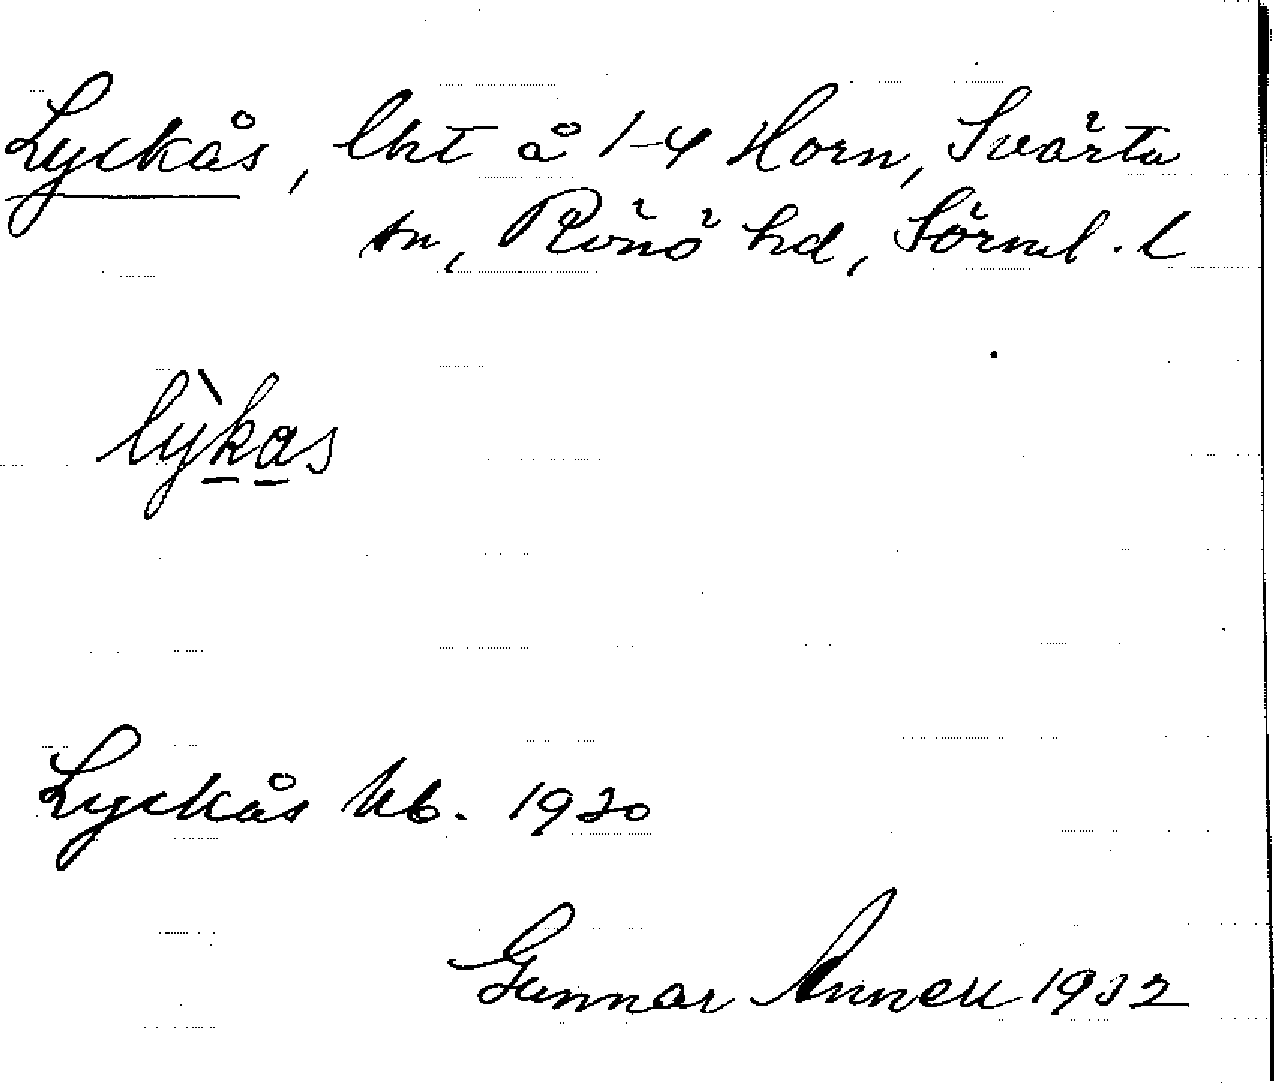 Lyckås, lht å 1-4 Horn, Svärta
sn, Rönö hd, Sörml. l
lỳkas
Lyckås kb. 1930
Gunnar Annell 1932